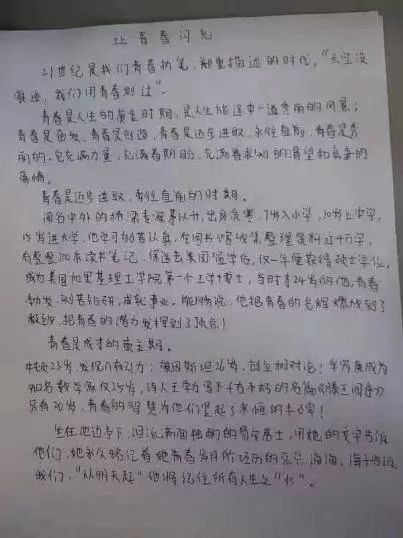 让青春闪光
21世纪是我们青春执笔,郑重描述的时代。"天空没
有痕迹,我们用青春划过"。
青春是人生的黄金时期,是人生旅途中一道秀丽的风景;
青春是奋发,青春是创造,青春是进步进取,永往直前,青春是秀
丽的,它充满力量,充满着期盼,充满着求知的渴望和竞争的
豪情。
青春是迈步进取,勇往直前的时期。
闻名中外的桥梁专家茅以升,出身贫寒,7岁入小学,10岁上中学,
15岁进大学,他学习刻苦认真,全图书馆收集整理资料近千万字,
有整整200本读书笔记,保送去美国留学后,仅一年便获得硕士学位,
成为美国加里基理工学院第一个工学博士,当时才24岁的他,青春
勃发,刻苦钻研,成就事业。
他把青春的光辉燃放到了
极致,把青春的潜力发挥到了顶点!
青春是成才的黄金期。
牛顿23岁发现万有引力;爱因斯坦26岁,创立相对论;华罗庚成为
知名数学教授仅25岁,诗人王勃写下千古不朽的名篇《滕王阁序》
只有20岁,青春的智慧为他们竖起了永恒的丰碑!
生在池边与下,泪流满面独酌的易安居士,用她的文字告诉
他们,她永久铭记着她青春岁月所经历的点点滴滴,海子告诉
我们,"从明天起"他将记住所有人生之"水"。